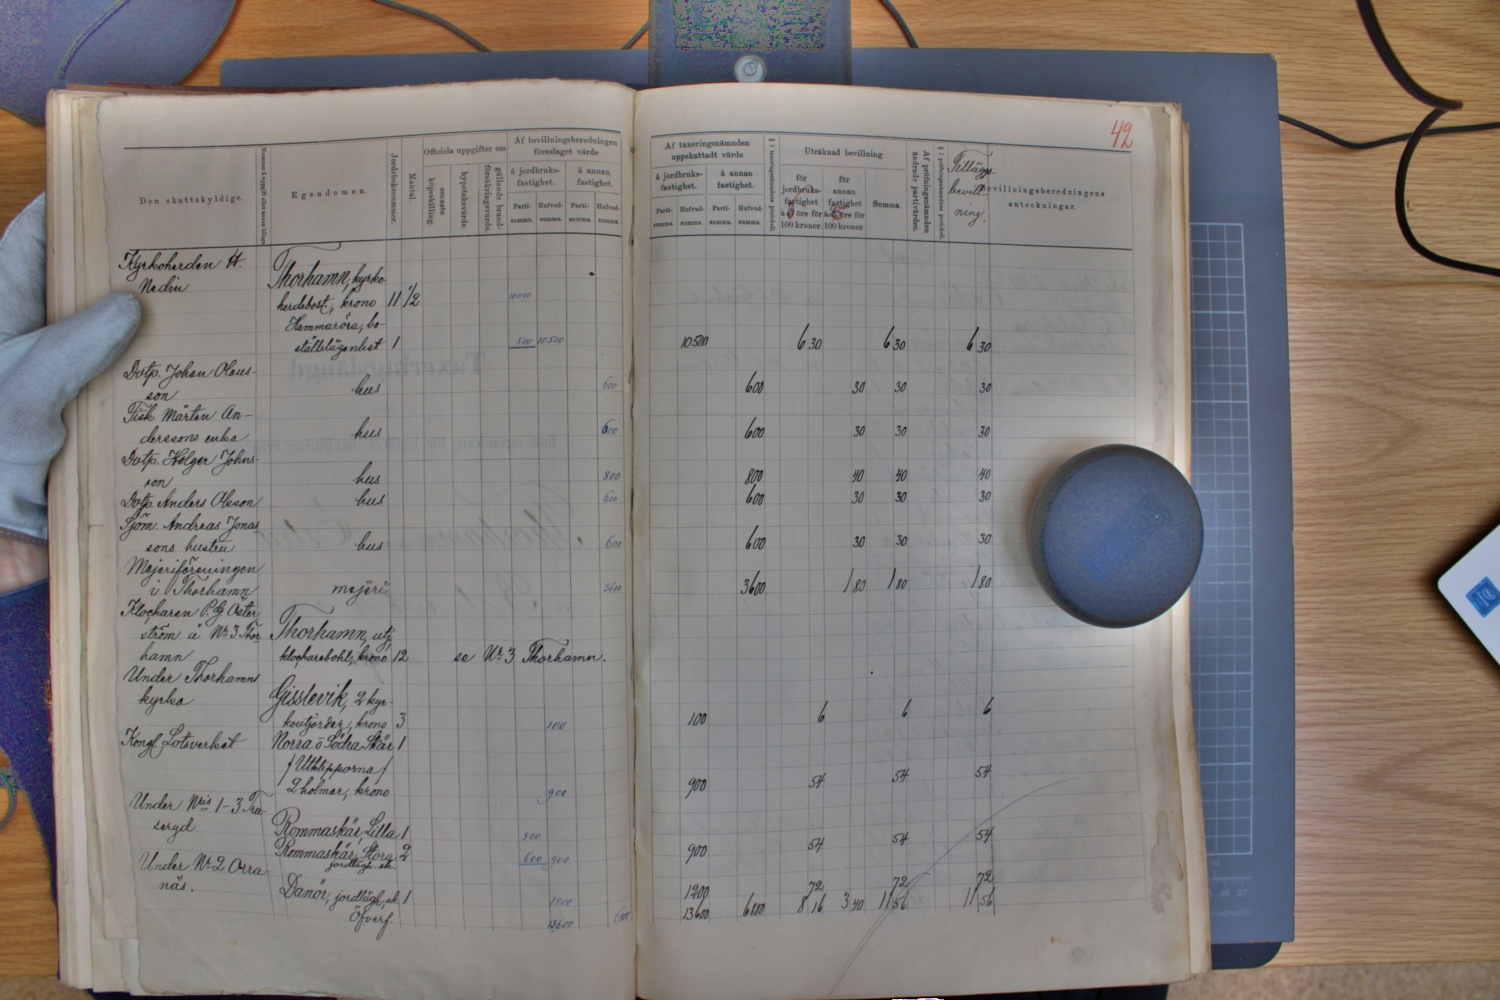 42
Den skattskyldige.
Egendomen.
Jordeboksnummer.
Mantal.
Officiela uppgifter om
senaste köpeskilling.
hypoteksvärde.
gällande brandförsäkringsvärde.
Af bevillningsberedningen föreslaget värde
å jordbruksfastighet.
å annan fastighet.
Parti-summa.
Hufvud-summa.
Parti-summa.
Hufvud-summa.
Af taxeringsnämnden uppskattadt värde
å jordbruksfastighet.
å annan fastighet.
Parti-summa.
Hufvud-summa.
Parti-summa.
Hufvud-summa.
Uträknad bevillning
för jordbruksfastighet
för annan fastighet
100 kroner.
100 kroner.
Summa.
Af pröfningsnämnden ändrade partivärden.
Tilläggs-
bevill-
ning.
Bevillningsberedningens anteckningar.
Kyrkoherden H. Thorhamn, kyrko-
herdebost., krono 11 1/2 10000
Hammaröra, bo-
ställslägenhet 1 500 10500 10500 6 30 6 30 6 30
Dbtp. Johan Olaus-
son hus 600 600 30 30 30
Fisk. Mårten An-
derssons enka hus 600 600 30 30 30
Dbtp. Holger Johns-
son hus 800 800 40 40 40
Dbtp. Anders Olsson hus 600 600 30 30 30
Sjöm. Andreas Jonas
sons hustru hus 600 600 30 30 30
Mejeriföreningen
i Thorhamn mejeri 3600 3600 1 80 1 80 1 80
Klockaren P. G. Öster
ström å No 3 Thor Thorhamn, utj.
hamn klockarebohl, krono 12 se No 3 Thorhamn.
Under Thorhamns
kyrka Gisslevik, 2 kyr-
koutjorder, krono 3 100 100 6 6 6
Kongl. Lotsverket Norra o Södra Skär 1
/Utklipporna/
2 holmar, krono 900 900 54 54 54
Under Nris 1-3 Tra-
seryd Rommaskär, Lilla 1 300
Rommaskär, Stora 2
jordlägh. sk. 600 900 900 54 54 54
Under No 2 Orra
näs. Danör, jordlägh, sk. 1 1200 1200 72 72 72
Öfverf. 13600 6800 13600 6800 8 16 3 40 11 56 11 56